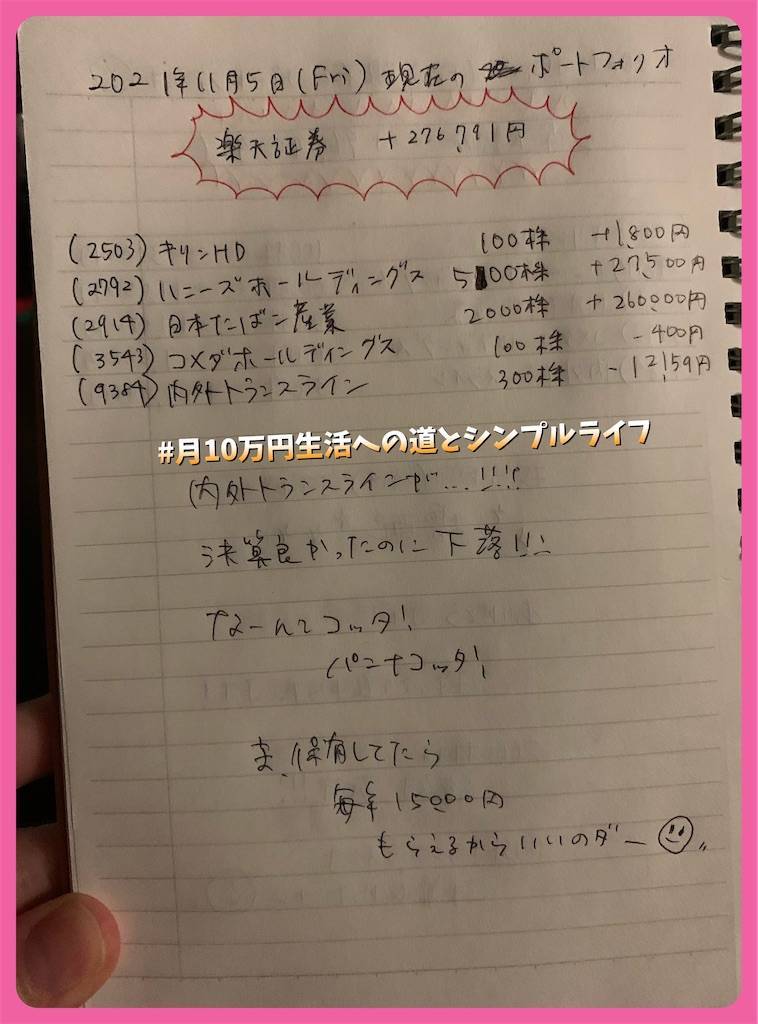 2021年11月5日(Fri) 現在の ポートフォリオ
楽天証券 +276,791円
(2503) キリンHD 100株 +1,800円
(2792) ハニーズホールディングス 500株 +27,500円
(2914) 日本たばこ産業 2000株 +260,000円
(3543) コメダホールディングス 100株 -400円
(9384) 内外トランスライン 300株 -12,159円
#月10万円生活への道とシンプルライフ
内外トランスラインが…!!!!
決算良かったのに下落!!!
なーんてコッタ!
パンナコッタ!
ま、保有してたら
毎年15,000円
もらえるからいいのダー